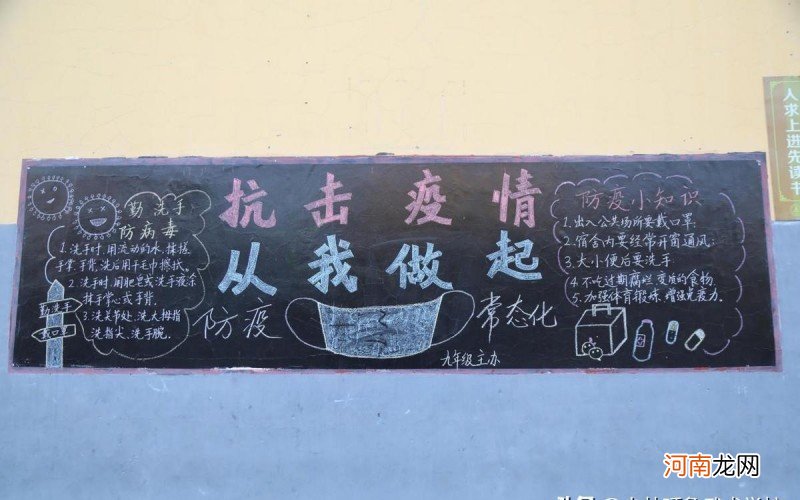 抗击疫情
从我做起
防疫
常态化
九年级主办
勤洗手
防病毒
1.洗手时,用流动的水,揉搓
手掌,手背,洗后用干毛巾擦拭。
2.洗手时,用肥皂或洗手液涂
抹手掌心或手背.
3.洗关节处,洗大拇指
洗指尖、洗手腕.
勤洗手
戴口罩
防疫小知识
1.出入公共场所要戴口罩;
2.宿舍内要经常开窗通风;
3.大小便后要洗手;
4.不吃过期腐烂变质的食物.
5.加强体育锻炼,增强免疫力.
人求上进先读书
河南龙网